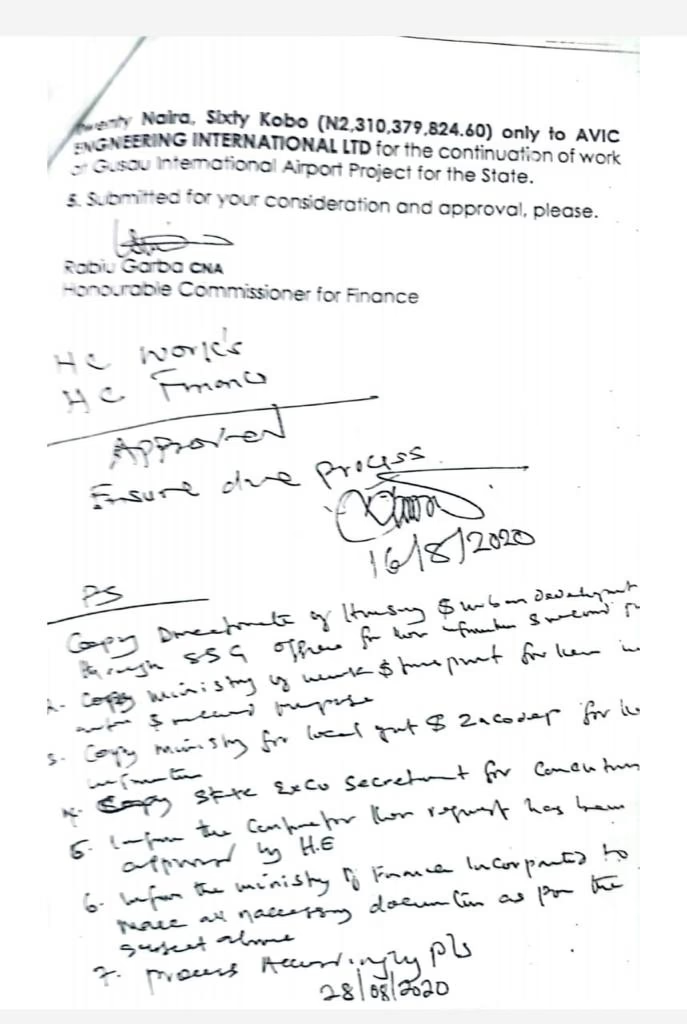 Twenty Naira, Sixty Kobo (N2,310,379,824.60) only to AVIC
ENGNEERING INTERNATIONAL LTD for the continuation of work
at Gusau International Airport Project for the State.
5. Submitted for your consideration and approval, please.
Rabiu Garba CNA
Honourable Commissioner for Finance
HC Work's
HC Finance
Approved
Ensure due process
16/8/2020
PS
Copy Directorate of Housing $ urban Development
through SSG office for
Copy Ministry of work $ transport for
$ record purpose
3. Copy Ministry for local govt $ Zacodep for
4. Copy State ExCo Secretariat for
5. Inform the request has been
approved by H.E
6. Inform the ministry of Finance Incorporated to
make all necessary as per the
subject above
7. Process Accordingly pls
28/08/2020